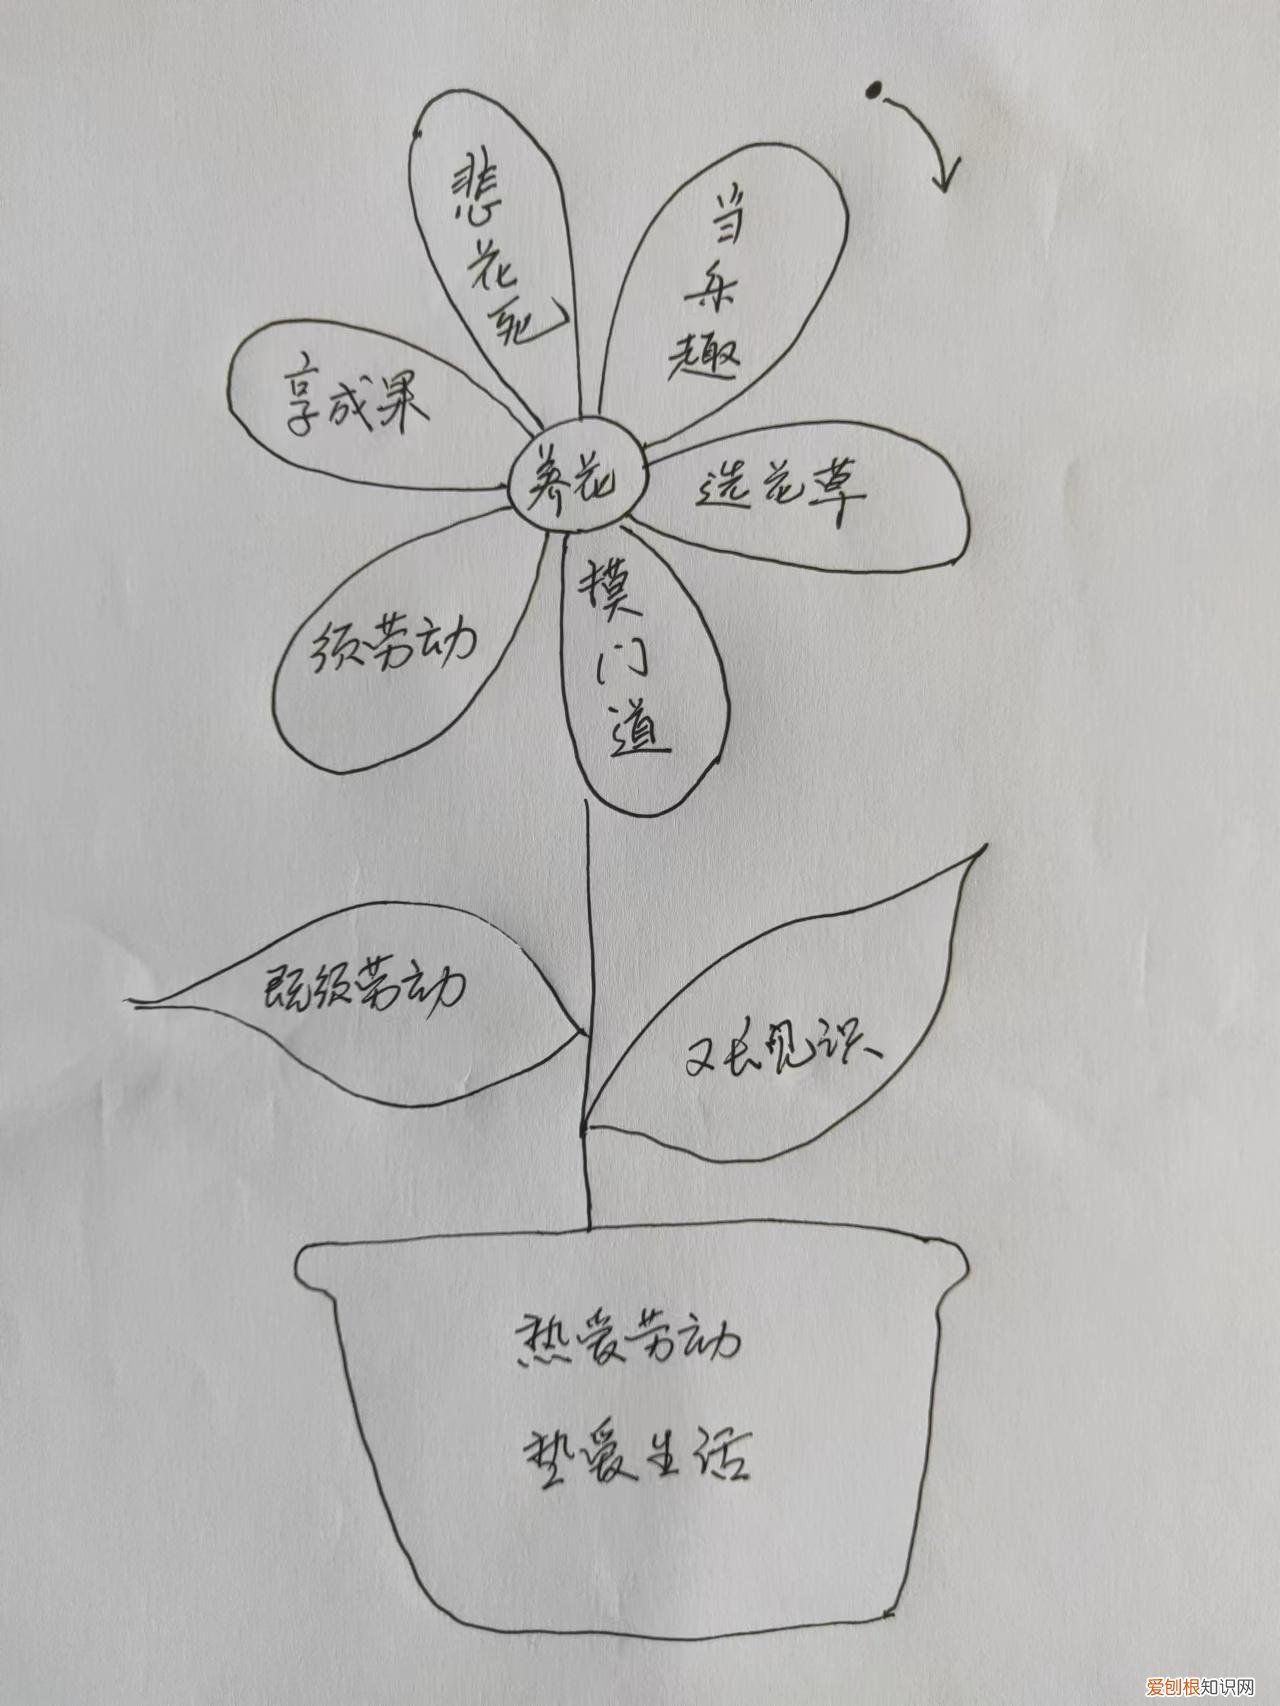 当乐趣
选花草
摸门道
须劳动
享成果
悲花死
养花
既须劳动
又长见识
热爱劳动
垫爱生活
爱刨根知识网